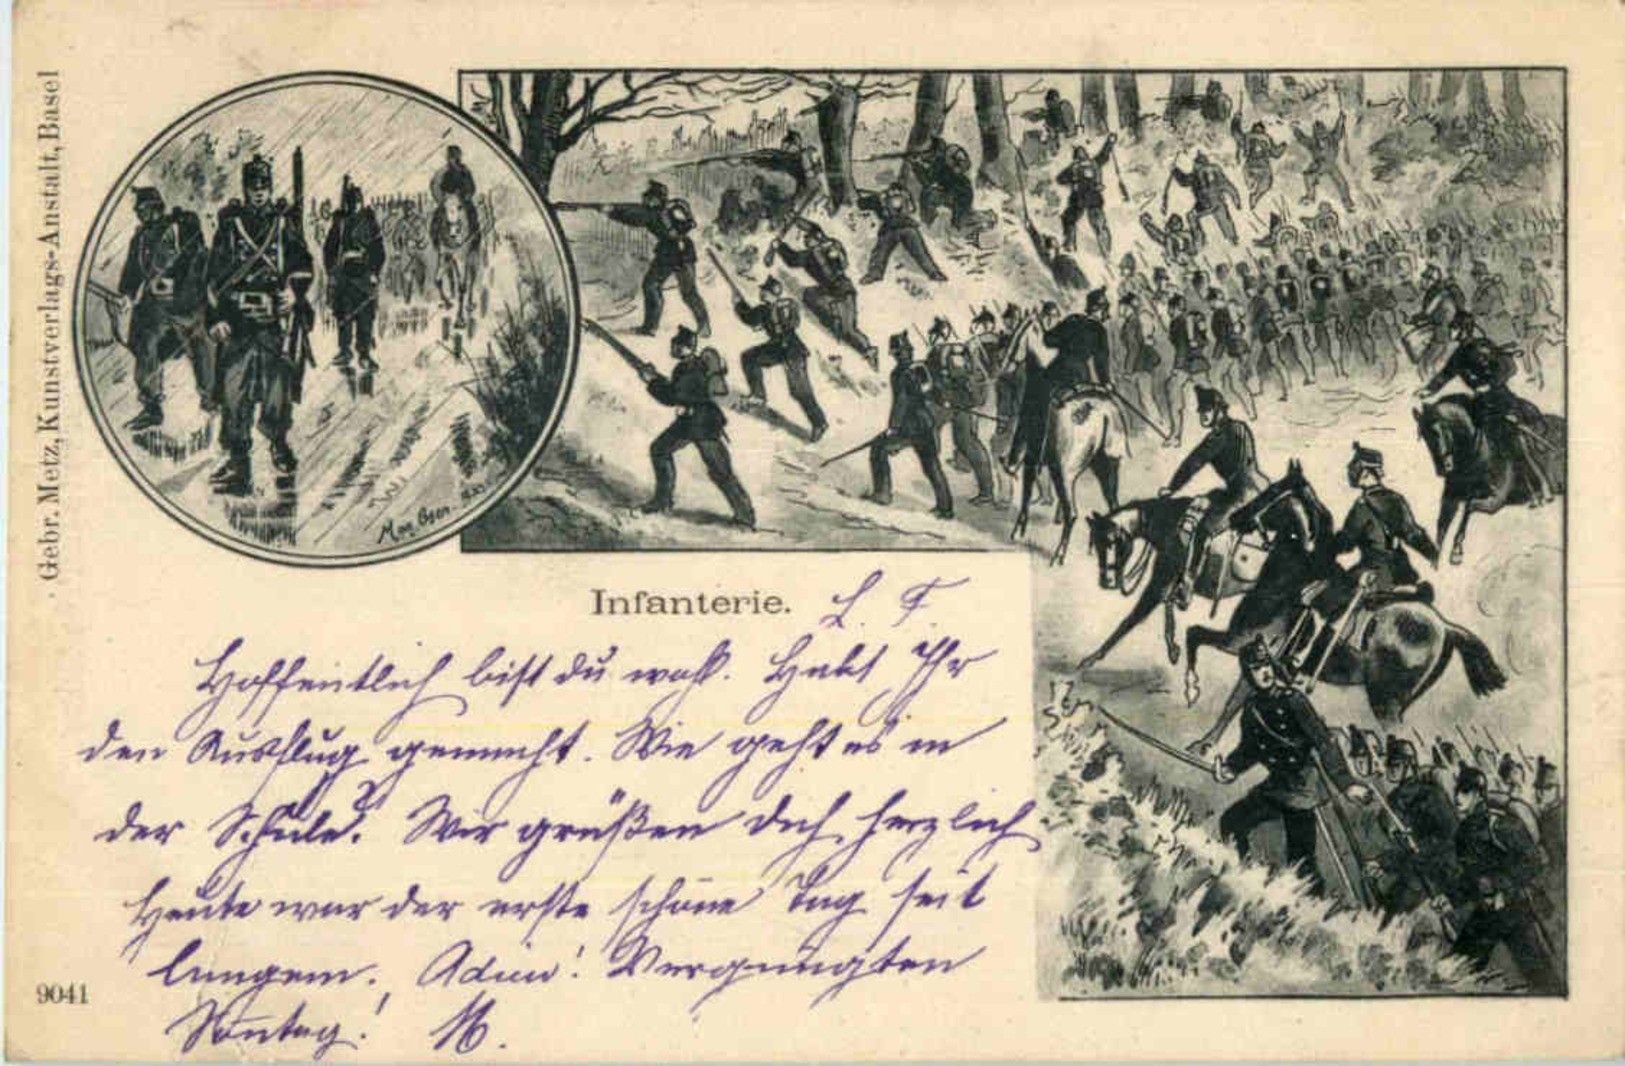 Gebr. Metz, Kunstverlags-Anstalt, Basel
Infanterie.
L. F.
Hoffentlich bist du wohl. Habt Ihr
den Ausflug gemacht. Wie geht es in
der Schule? Wir grüßen Dich herzlich
Heute war der erste schöne Tag seit
langem. Adieu! Vergnügten
Sonntag! M.
9041